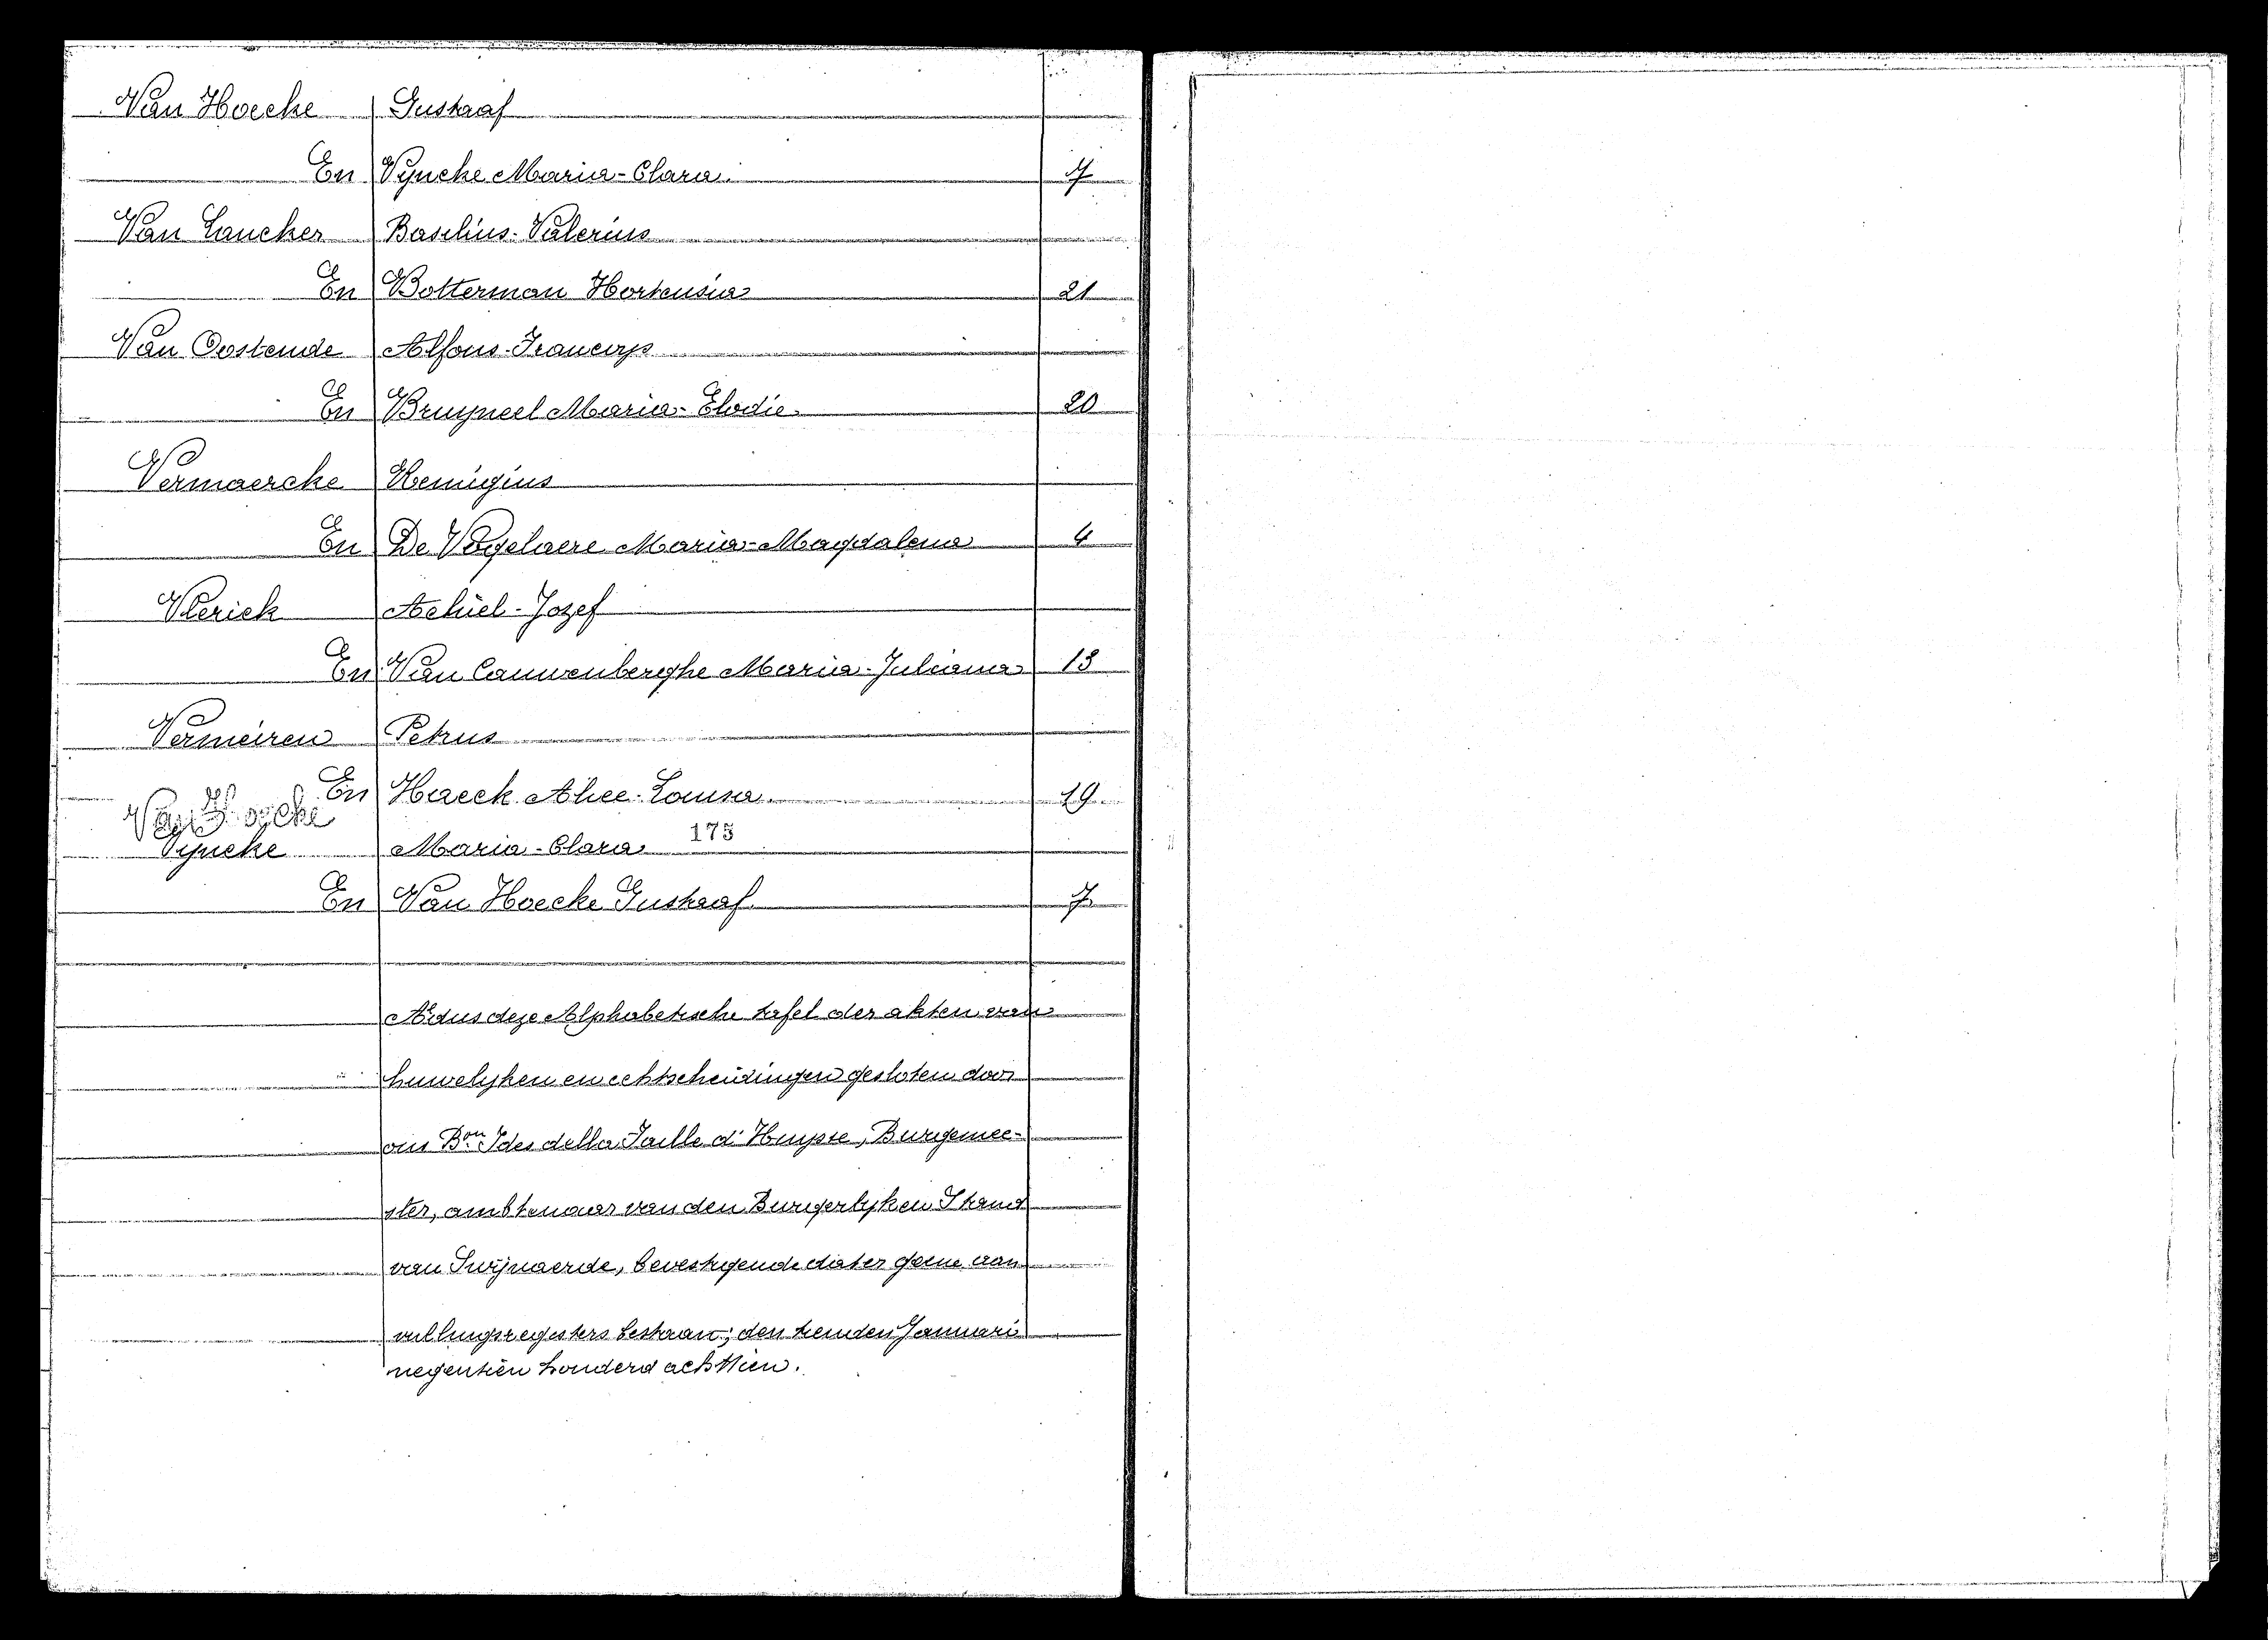 Van Hoecke Gustaaf
En Vyncke Maria-Clara 7
Van Laucker Basilius-Valerius
En Botterman Hortensia 21
Van Oostende Alfons-François
En Bruyneel Maria-Elodie 20
Vermaercke Remigius
En De Vogelaere Maria-Magdalena 4
Vlerick Achiel-Jozef
En Van Cauwenberghe Maria-Juliana 13
Vermeiren Petrus
En Haeck Alice-Louisa 19
Van Hoecke
Vyncke Maria-Clara 175
En Van Hoecke Gustaaf 7
Aldus deze Alphabetische tafel der akten van
huwelijken en echtscheidingen gesloten door
ons Bon Ides della Faille d'Huysse, Burgemee-
ster, ambtenaar van den Burgerlijken Stand
van Swijnaerde, bevestigende dat er geene aan
vullingsregisters bestaan; den tienden Januari
negentien honderd achttien.